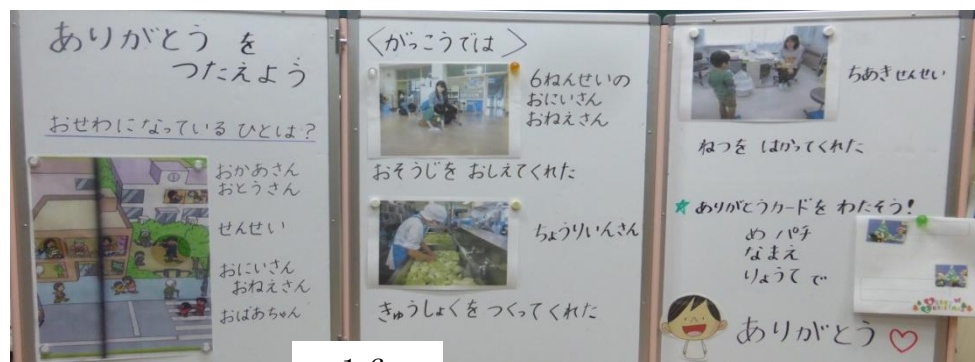 ありがとう を
つたえよう
おせわになっている ひとは?
おかあさん
おとうさん
せんせい
おにいさん
おねえさん
おばあちゃん
〈がっこうでは〉
6ねんせいの
おにいさん
おねえさん
おそうじを おしえてくれた
ちょうりいんさん
きゅうしょくを つくってくれた
ちあきせんせい
ねつを はかってくれた
★ありがとうカードを わたそう!
め パチ
なまえ
りょうて で
ありがとう♡